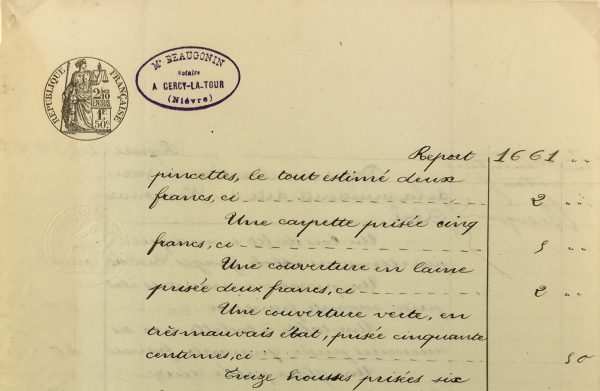 RÉPUBLIQUE FRANÇAISE
2/10 EN SUS
1F 50c
Me BEAUGONIN
Notaire
A CERCY-LA-TOUR
(Nièvre)
Report 1661 "
pincettes, le tout estimé deux
francs, ci 2 "
Une carpette prisée cinq
francs, ci 5 "
Une couverture en laine
prisée deux francs, ci 2 "
Une couverture verte, en
très mauvais état, prisée cinquante
centimes, ci 50
Treize housses prisées six